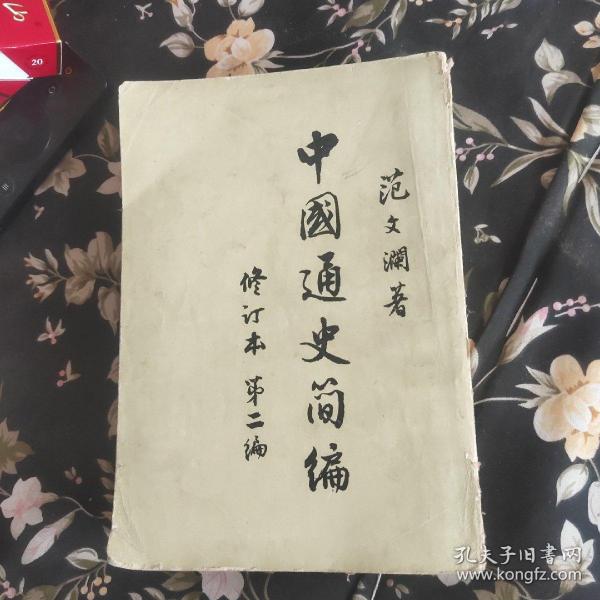 范文瀾著
中國通史简编
修订本 第二编
20
孔夫子旧書网
www.kongfz.com